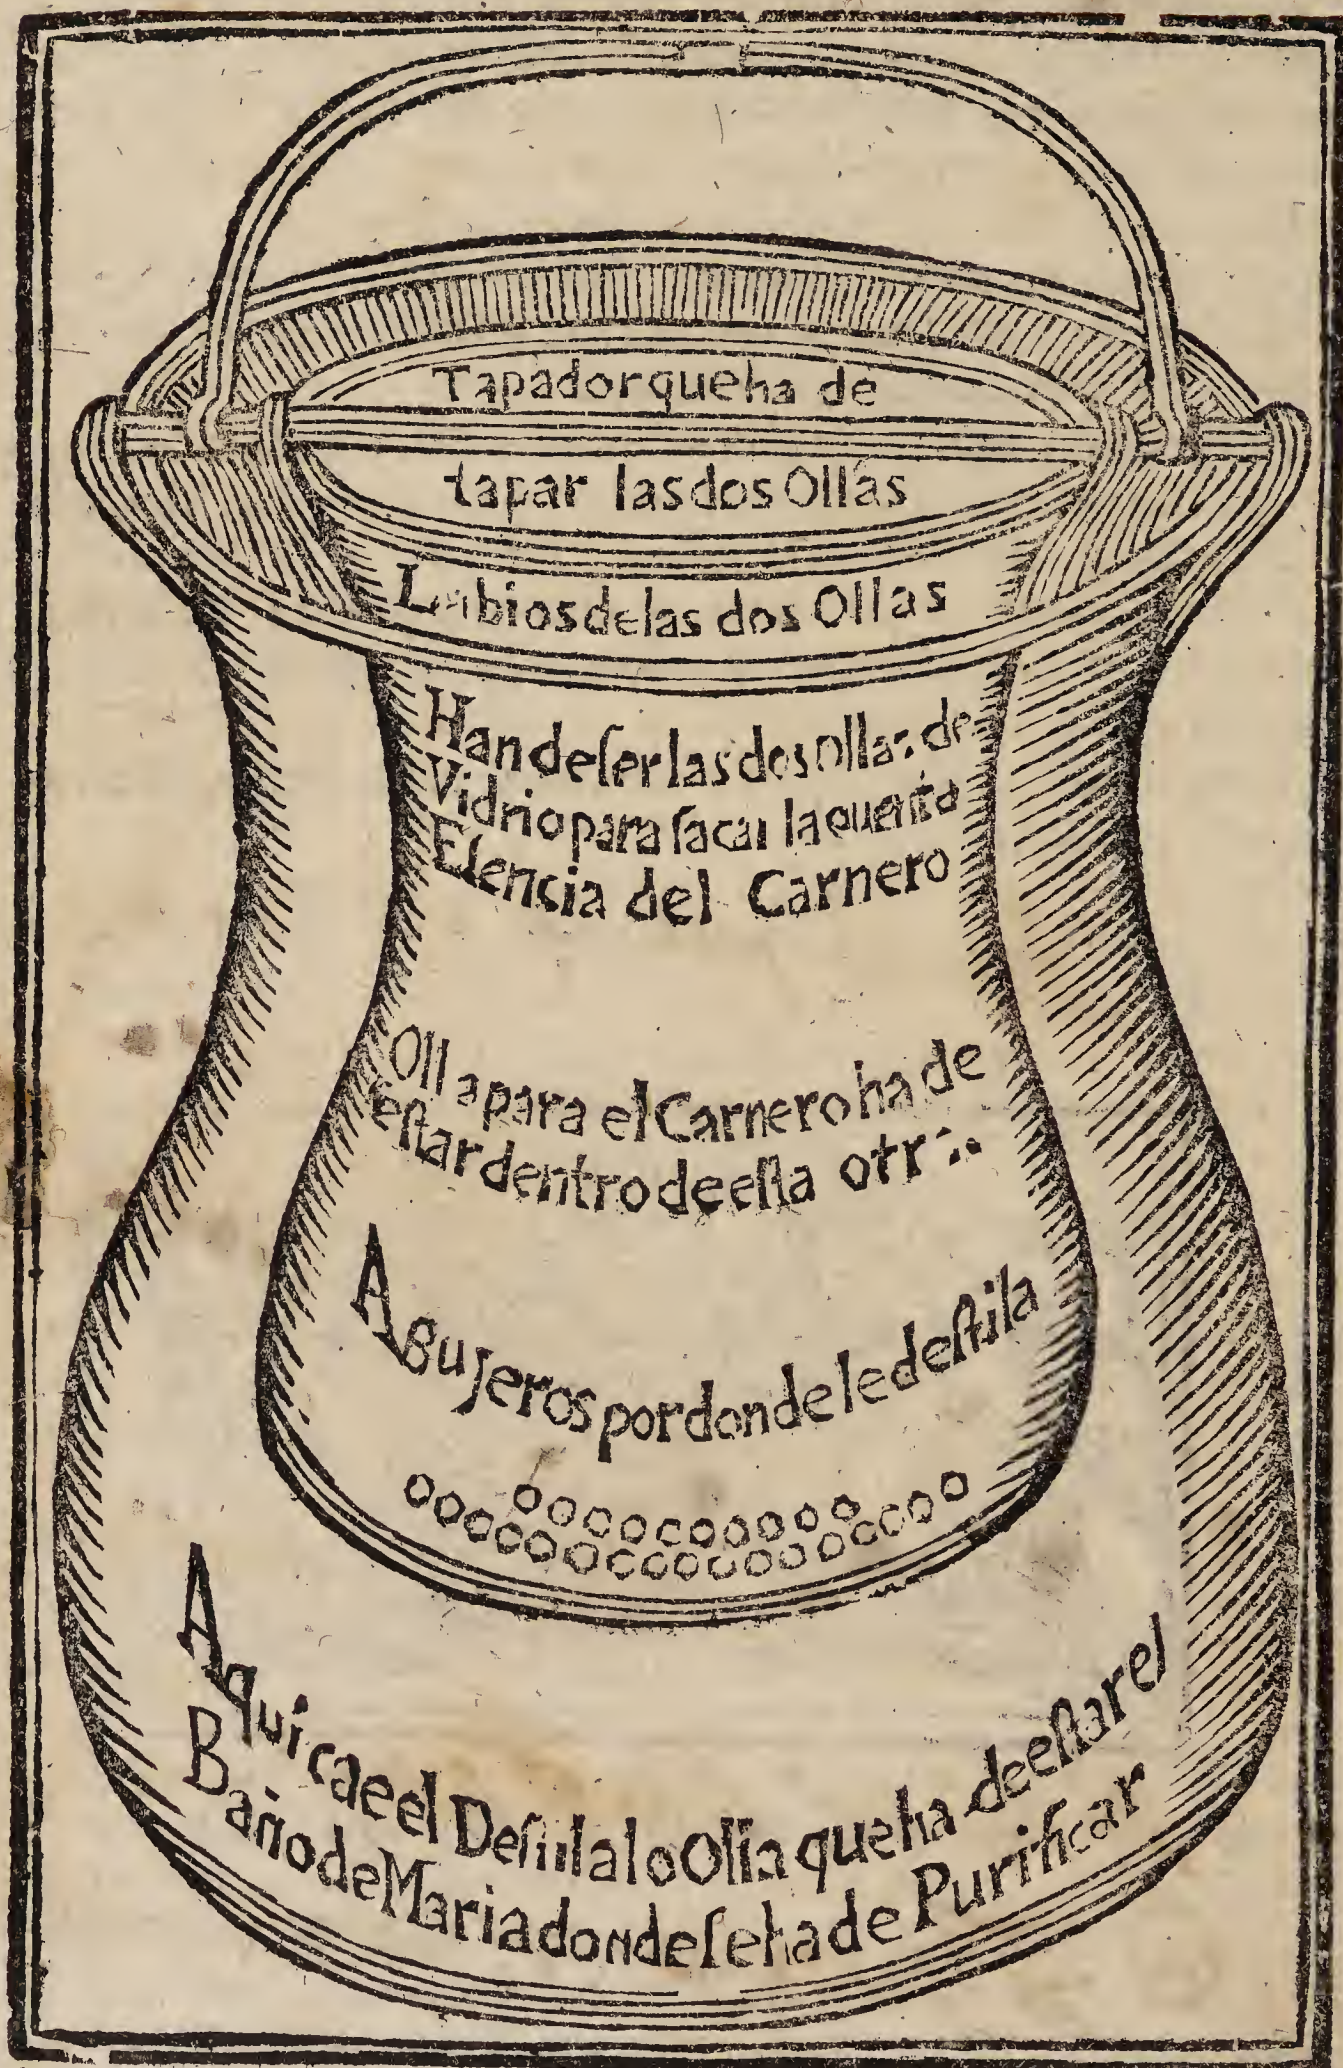 Tapador que ha de
tapar las dos Ollas
Labios de las dos Ollas
Han de ſer las dos ollas de
Vidrio para ſacar la quenta
Eſencia del Carnero
Olla para el Carnero ha de
eſtar dentro de eſta otra
ABujeros por donde ſe deſtila
Aqui cae el Deſtilalo Olla que ha de eſtar el
Baño de Maria donde ſe ha de Purificar